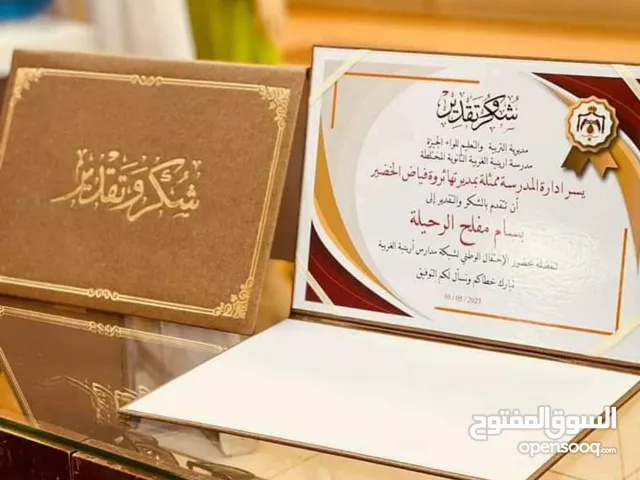 شكر وتقدير
شكر وتقدير
مديرية التربية والتعليم للواء الجيزة
مدرسة أرينبة الغربية الثانوية المختلطة
يسر ادارة المدرسة ممثلة بمديرتها ثروة فياض الخضير
أن تتقدم بالشكر والتقدير إلى
بسام مفلح الرحيلة
لتفضله بحضور الإحتفال الوطني لشبكة مدارس أرينبة الغربية
نبارك خطاكم ونسأل لكم التوفيق
10 / 05 / 2023
السوق المفتوح
opensooq.com